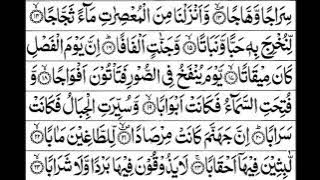 سِرَاجًا وَّهَّاجًا ﴿۱۳﴾ وَّاَنْزَلْنَا مِنَ الْمُعْصِرٰتِ مَآءً ثَجَّاجًا ﴿۱۴﴾
لِّنُخْرِجَ بِهٖ حَبًّا وَّنَبَاتًا ﴿۱۵﴾ وَّجَنّٰتٍ اَلْفَافًا ﴿۱۶﴾ اِنَّ يَوْمَ الْفَصْلِ
كَانَ مِيْقَاتًا ﴿۱۷﴾ يَّوْمَ يُنْفَخُ فِى الصُّوْرِ فَتَاْتُوْنَ اَفْوَاجًا ﴿۱۸﴾ وَّ
فُتِحَتِ السَّمَآءُ فَكَانَتْ اَبْوَابًا ﴿۱۹﴾ وَّسُيِّرَتِ الْجِبَالُ فَكَانَتْ
سَرَابًا ﴿۲۰﴾ اِنَّ جَهَنَّمَ كَانَتْ مِرْصَادًا ﴿۲۱﴾ لِّلطَّاغِيْنَ مَاٰبًا ﴿۲۲﴾
لّٰبِثِيْنَ فِيْهَآ اَحْقَابًا ﴿۲۳﴾ لَا يَذُوْقُوْنَ فِيْهَا بَرْدًا وَّلَا شَرَابًا ﴿۲۴﴾